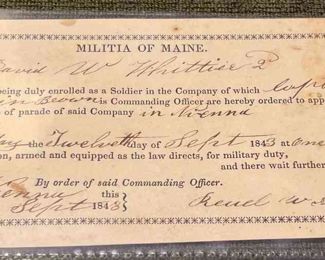 MILITIA OF MAINE.
David W Whittier 2
being duly enrolled as a Soldier in the Company of which Capt
Brown is Commanding Officer are hereby ordered to appe
of parade of said Company in Vienna
the Twelvth day of Sept 1843 at one
on, armed and equipped as the law directs, for military duty,
and there wait further
By order of said Commanding Officer.
Vienna this
Sept 1843 Reuel W